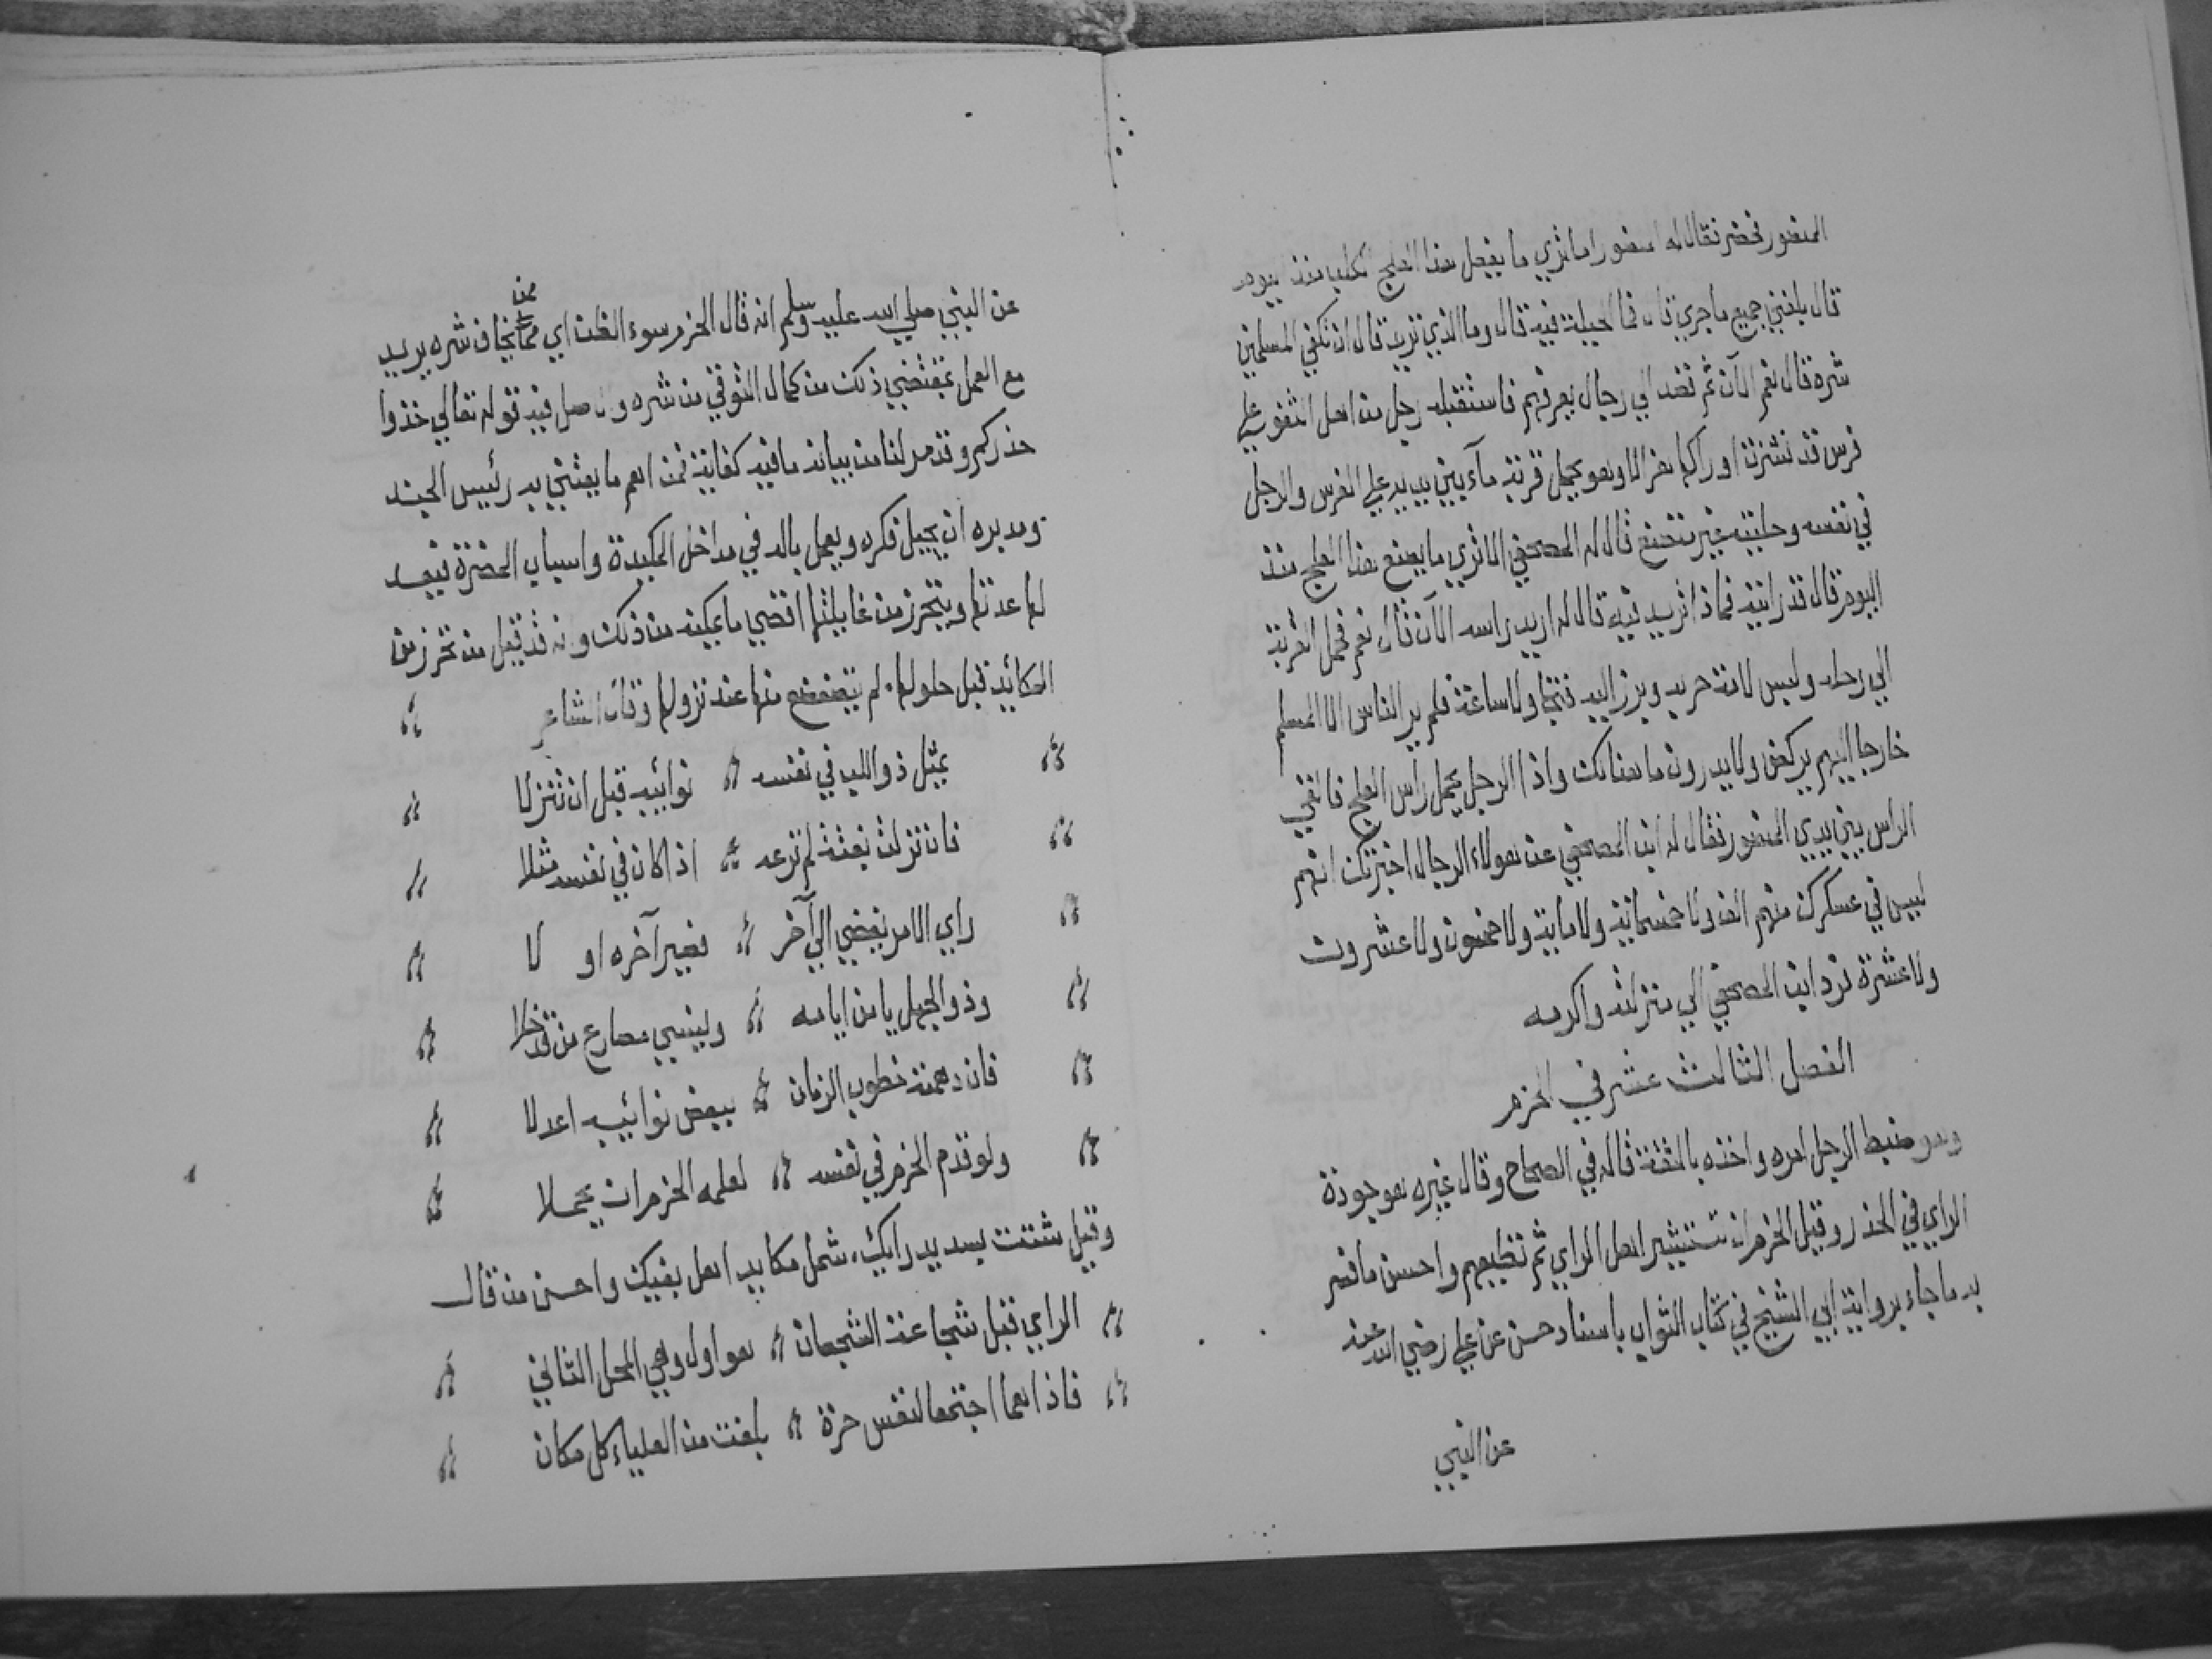 المنصور فحضر فقال له المنصور اما تري ما يفعل هذا العلج الكلب منذ اليوم
قال بلغني جميع ما جري قال فما الحيلة فيه قال وما الذي تريد قال ان تكفي المسلمين
شره قال نعم الآن ثم قصد الي رجال يعرفهم فاستقبله رجل من اهل الثغور علي
فرس قد نشزت اوراكها هزالا وهو يحمل قربة مآء بين يديه علي الفرس والرجل
في نفسه وحليته غير متصنع قال له المصحفي الا تري ما يصنع هذا العلج منذ
اليوم قال قد رايته فماذا تريد فيه قال له اريد راسه الآن قال نعم فحمل القربة
الي رحله ولبس لامة حربه وبرز اليه فتجاولا ساعة فلم ير الناس الا المسلم
خارجا اليهم يركض ولا يدرون ما هنالك واذا الرجل يحمل رأس العلج فالقي
الراس بين يدي المنصور فقال له ابن المصحفي عن هولاء الرجال اخبرتك انهم
ليس في عسكرك منهم الف ولا خمسمائة ولا مأية ولا خمسون ولا عشرون
ولا عشرة فرد ابن المصحفي الي منزلته واكرمه
الفصل الثالث عشر في الحزم
وهو ضبط الرجل امره واخذه بالثقة قاله في الصحاح وقال غيره هو جودة
الراي في الحذر وقيل الحزم ان تستشير اهل الراي ثم تطيعهم واحسن ما فسر
به ما جاء برواية ابي الشيخ في كتاب الثواب باسناد حسن عن علي رضي الله عنه
عن النبي
عن النبي صلي الله عليه وسلم انه قال الحزم سوء الظن اي ممن يخاف شره يريد
مع العمل بمقتضي ذلك من كمال التوقي من شره والاصل فيه قوله تعالي خذوا
حذركم وقد مر لنا من بيانه ما فيه كفاية فمن اهم ما يعتني به رئيس الجند
ومدبره ان يجيل فكره ويعمل باله في مداخل المكيدة واسباب المضرة فيعد
لها عدتها ويتحرز من غايلتها اقصي ما يمكنه من ذلك وانه قد قيل من تحرز من
المكائد قبل حلولها لم يتضعضع منها عند نزولها وقال الشاعر
يمثل ذو اللب في نفسه نوائبه قبل ان تنزلا
فان نزلت بغتة لم ترعه اذا كان في نفسه مثلا
راي الامر يفضي الي آخر فصير آخره اولا
وذو الجهل يامن ايامه وينسي مصارع من قد خلا
فان دهمته خطوب الزمان ببعض نوائبه اعولا
ولو قدم الحزم في نفسه لعلمه الحزم ان يحملا
وقيل شتت بسديد رايك، شمل مكايد اهل بغيك واحسن من قال
الراي قبل شجاعة الشجعان هو اول وهي المحل الثاني
فاذا هما اجتمعا لنفس حرة بلغت من العلياء كل مكان